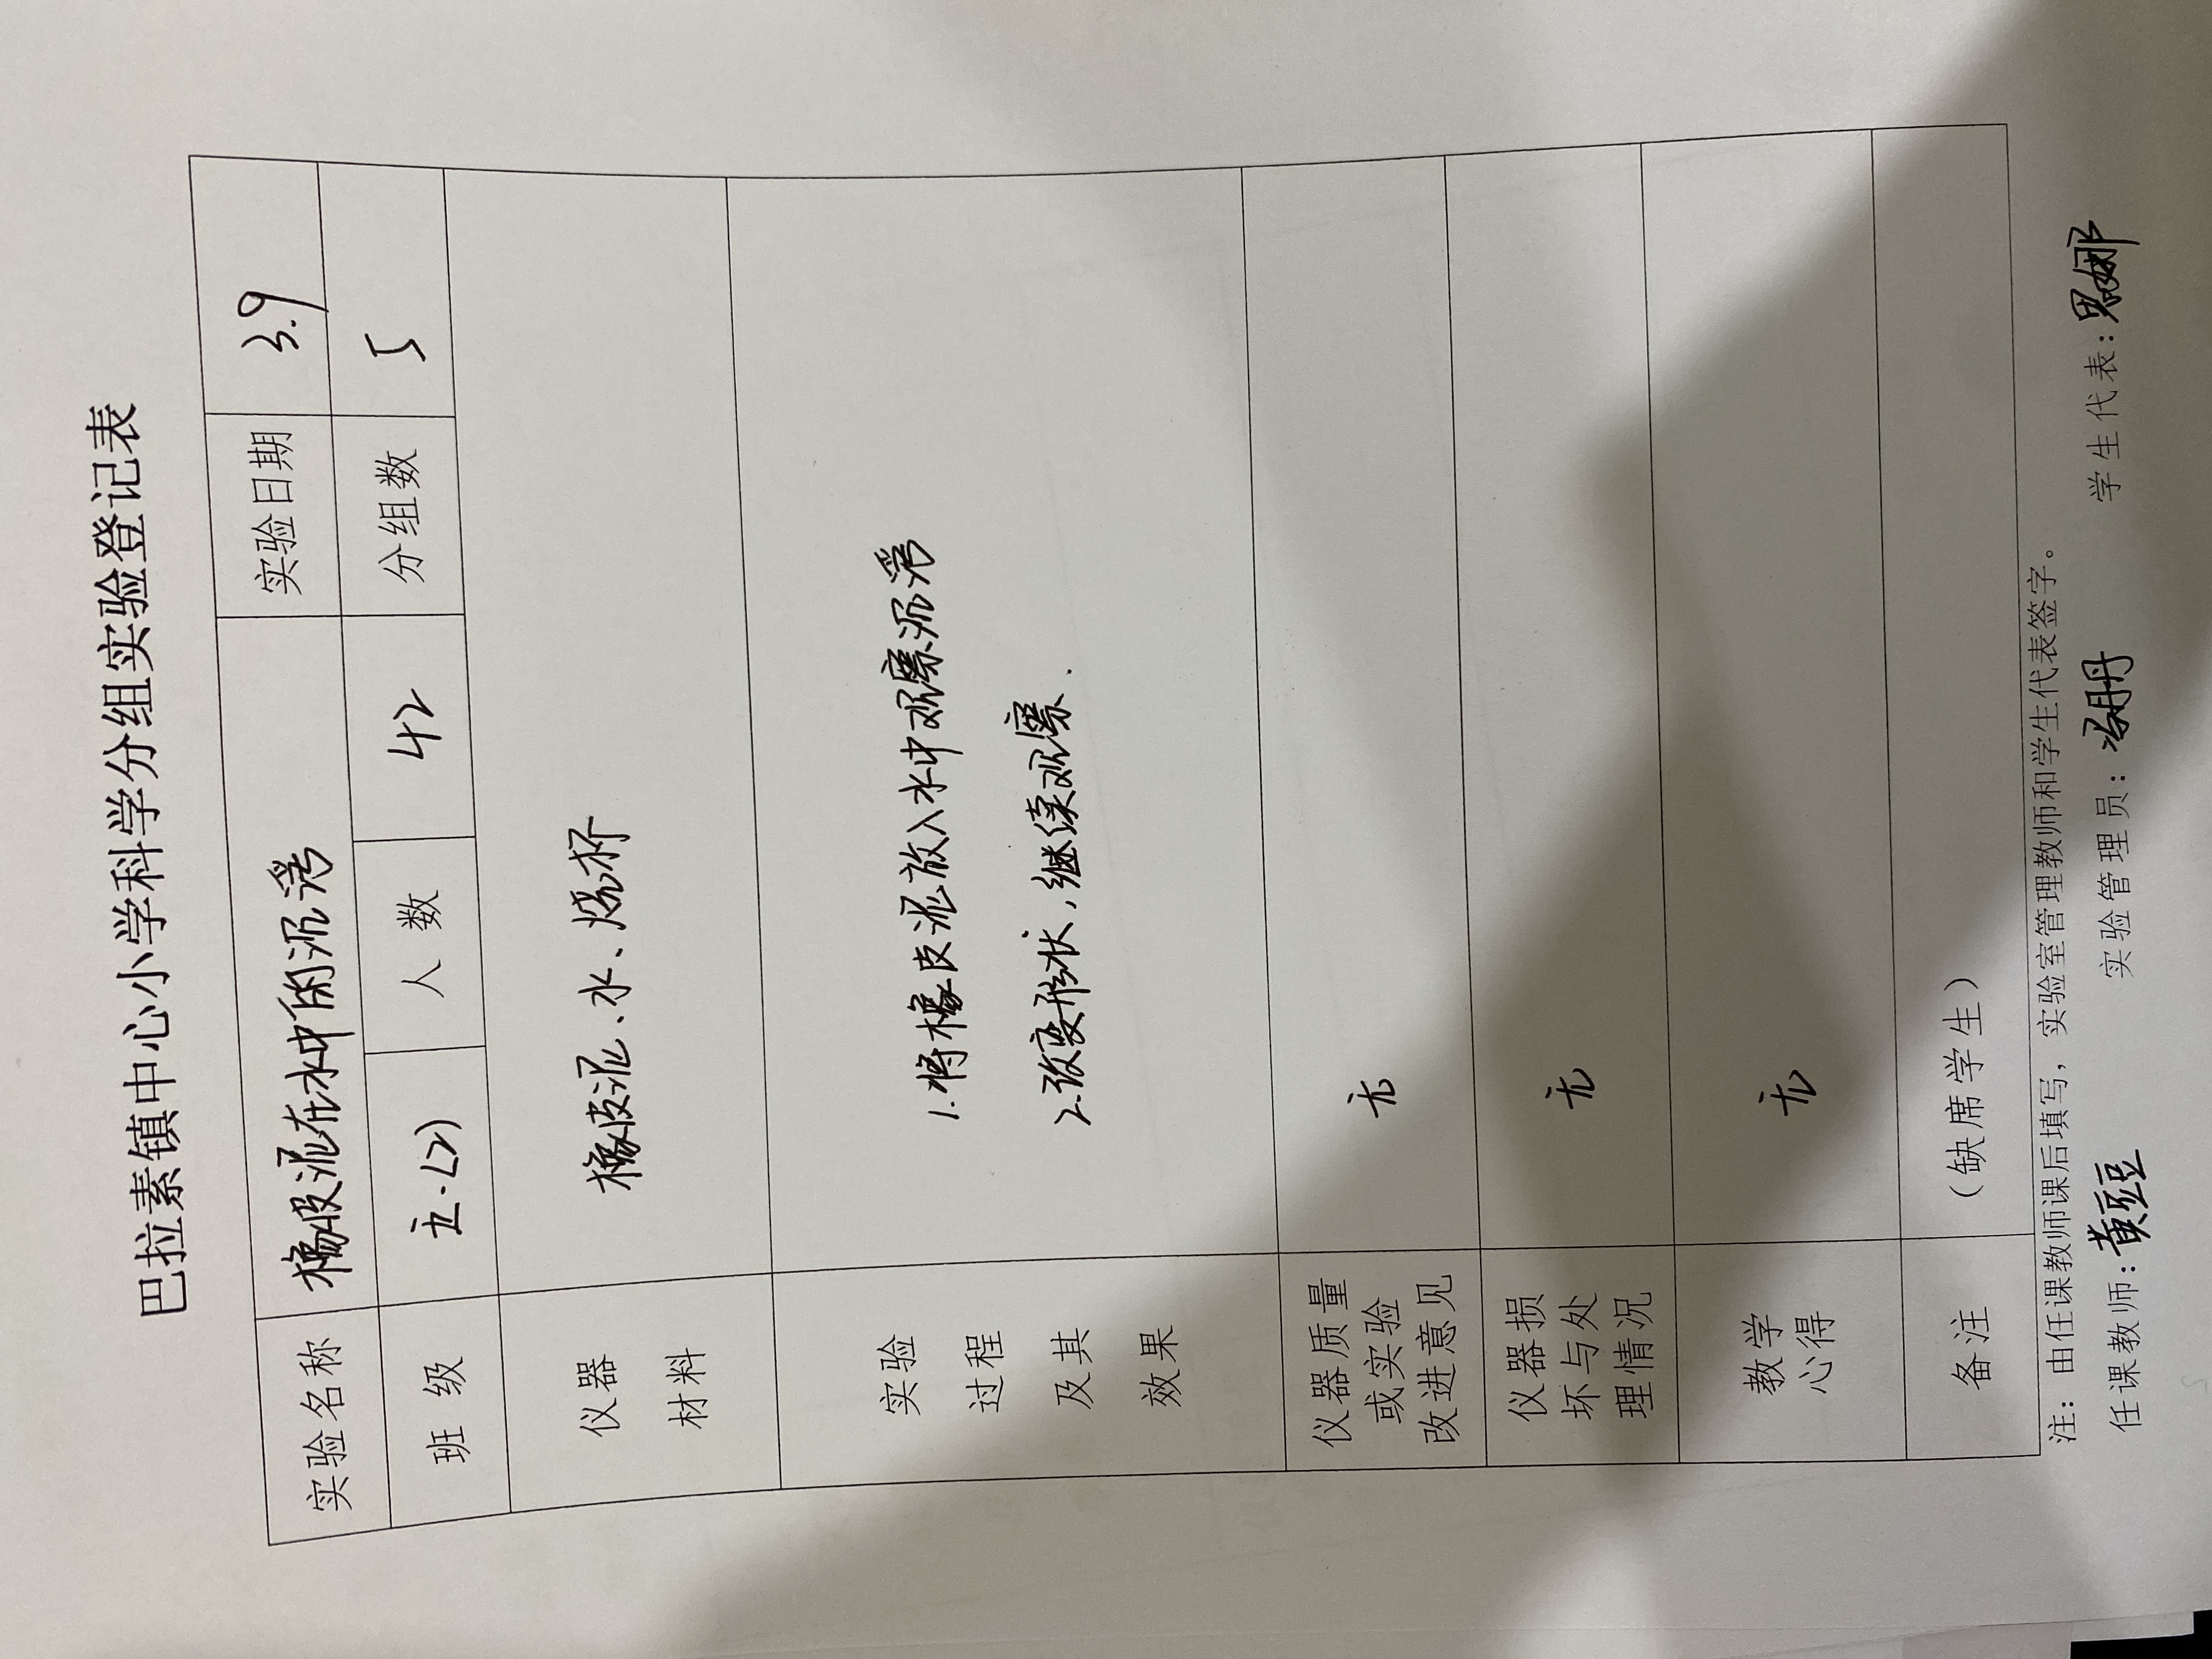 巴拉素镇中心小学科学分组实验登记表
实验名称 橡皮泥在水中的沉浮 实验日期 3.9
班 级 五.(2) 人 数 42 分组数 5
仪器
材料
橡皮泥、水、烧杯
实验
过程
及其
效果
1.将橡皮泥放入水中观察沉浮
2.改变形状,继续观察.
仪器质量
或实验
改进意见
无
仪器损
坏与处
理情况
无
教学
心得
无
备注 (缺席学生)
注:由任课教师课后填写,实验室管理教师和学生代表签字。
任课教师:黄豆豆 实验管理员: 学生代表: